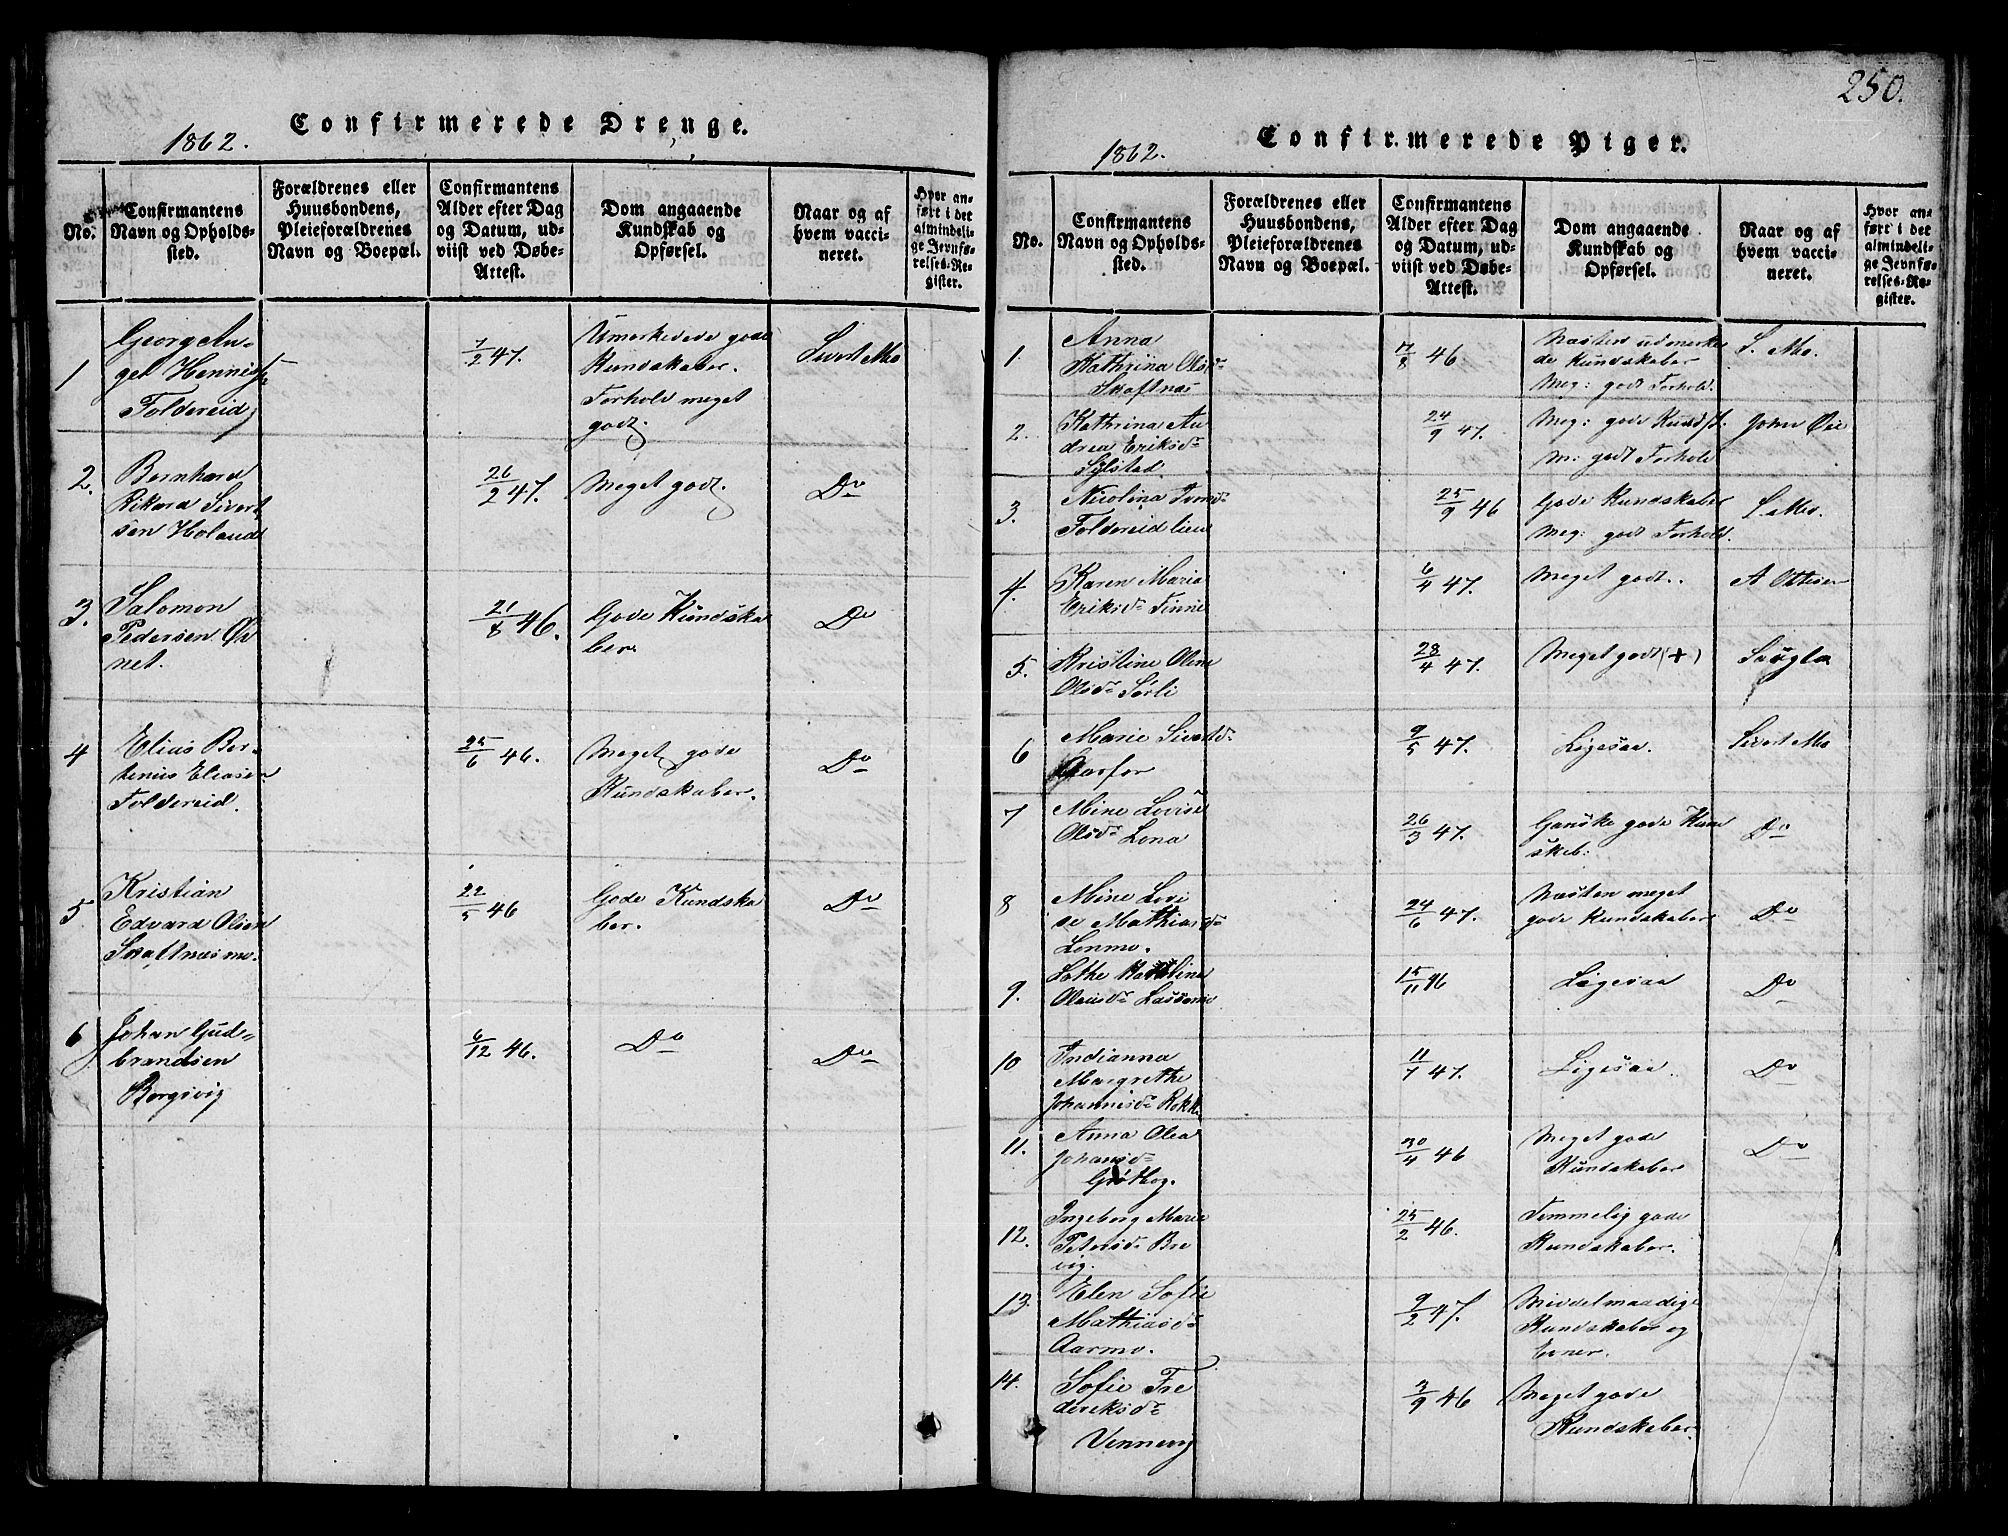 250.
Confirmerede Drenge.
1862.
No.
Confirmantens
Navn og Opholds-
sted.
Forældrenes eller
Huusbondens,
Pleieforældrenes
Navn og Boepæl.
Confirmantens
Alder efter Dag
og Datum, ud-
viist ved Døbe-
Attest.
Dom angaaende
Kundskab og
Opførsel.
Naar og af
hvem vacci-
neret.
Hvor an-
ført i det
almindeli-
ge Jevnfø-
relses-Re-
gister.
1 Georg Au-
gel
Foldereid
7/2 47.
Kundskaber.
Forhold meget
godt.
Sivert Mo
2. Bernhard
Rikard Sivert
sen Holand
26/2 47. Meget godt. Do
3. Salomon
Pedersen Øv
net.
21/8 46.
Gode Kundska
ber.
Do
4 Elias Ber-
Eliasen
Foldereid.
25/6 46.
Meget gode
Kundskaber.
Do
5 Kristian
Edvard Olsen
Skaftnesmo.
22/5 46
Gode Kundska
ber.
Do
6 Johan Gud-
brandsen
Borgsvig
6/12 46. Do Do
Confirmerede Piger.
1862.
No.
Confirmantens
Navn og Opholds-
sted.
Forældrenes eller
Huusbondens,
Pleieforældrenes
Navn og Boepæl.
Confirmantens
Alder efter Dag
og Datum, ud-
viist ved Døbe-
Attest.
Dom angaaende
Kundskab og
Opførsel.
Naar og af
hvem vacci-
neret.
Hvor an-
ført i det
almindeli-
ge Jevnfø-
relses-Re-
gister.
1. Anna
Kathrina Olsd.
Skaftnæs
17/8 46
Næsten udmerke
de Kundskaber
Meg: godt Forhold.
S. Mo.
2. Kathrina An
drea Eriksd.
Sylstad
24/9 47.
Meg: gode Kundsk.
M: godt Forhold
John Øie
3. Nicolina
Foldereidlien
25/9 46
Gode Kundskaber
Meg: godt Forhold.
S. Mo.
4. Karen Maria
Eriksd. Finne
6/4 47. Meget godt. A Ottesen
5. Kristine Oline
Olsd. Sørli
28/4 47. Meget godt (+)
6 Marie Sivertd.
Aarfor
9/5 47. Ligesaa. Sivert Mo
7 Mine Lovise
Olsd. Lona
26/3 47.
Ganske gode Kund
skab:
Do
8 Mine Lovi
se Mathiasd.
Lonmo.
24/6 47.
Næsten meget
gode Kundskaber
Do
9.
15/11 46 Ligesaa Do
10 Indianna
Margrethe
Johannesd.
11/7 47. Ligesaa. Do
11. Anna Olea
Johansd.
30/4 46
Meget gode
Kundskaber
Do
12. Ingeborg Marie
Petersd. Bre
vig.
25/2 46.
Temmelig gode
Kundskaber.
13. Elen Sofie
Mathiasd.
Aarmo.
9/2 47.
Middelmaadige
Kundskaber og
Evner.
14. Sofie Fre
deriksd.
3/9 46
Meget gode
Kundskaber.